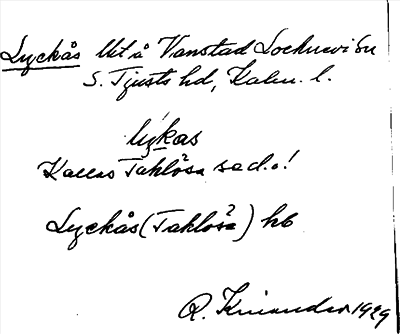 Lyckås Utå Vanstad Locknevi Sn
S. Tjusts hd, Kalm. l.
lykas
Kallas Taklösa sed.o!
Lyckås (Taklösa) hb
R. Kinander 1929